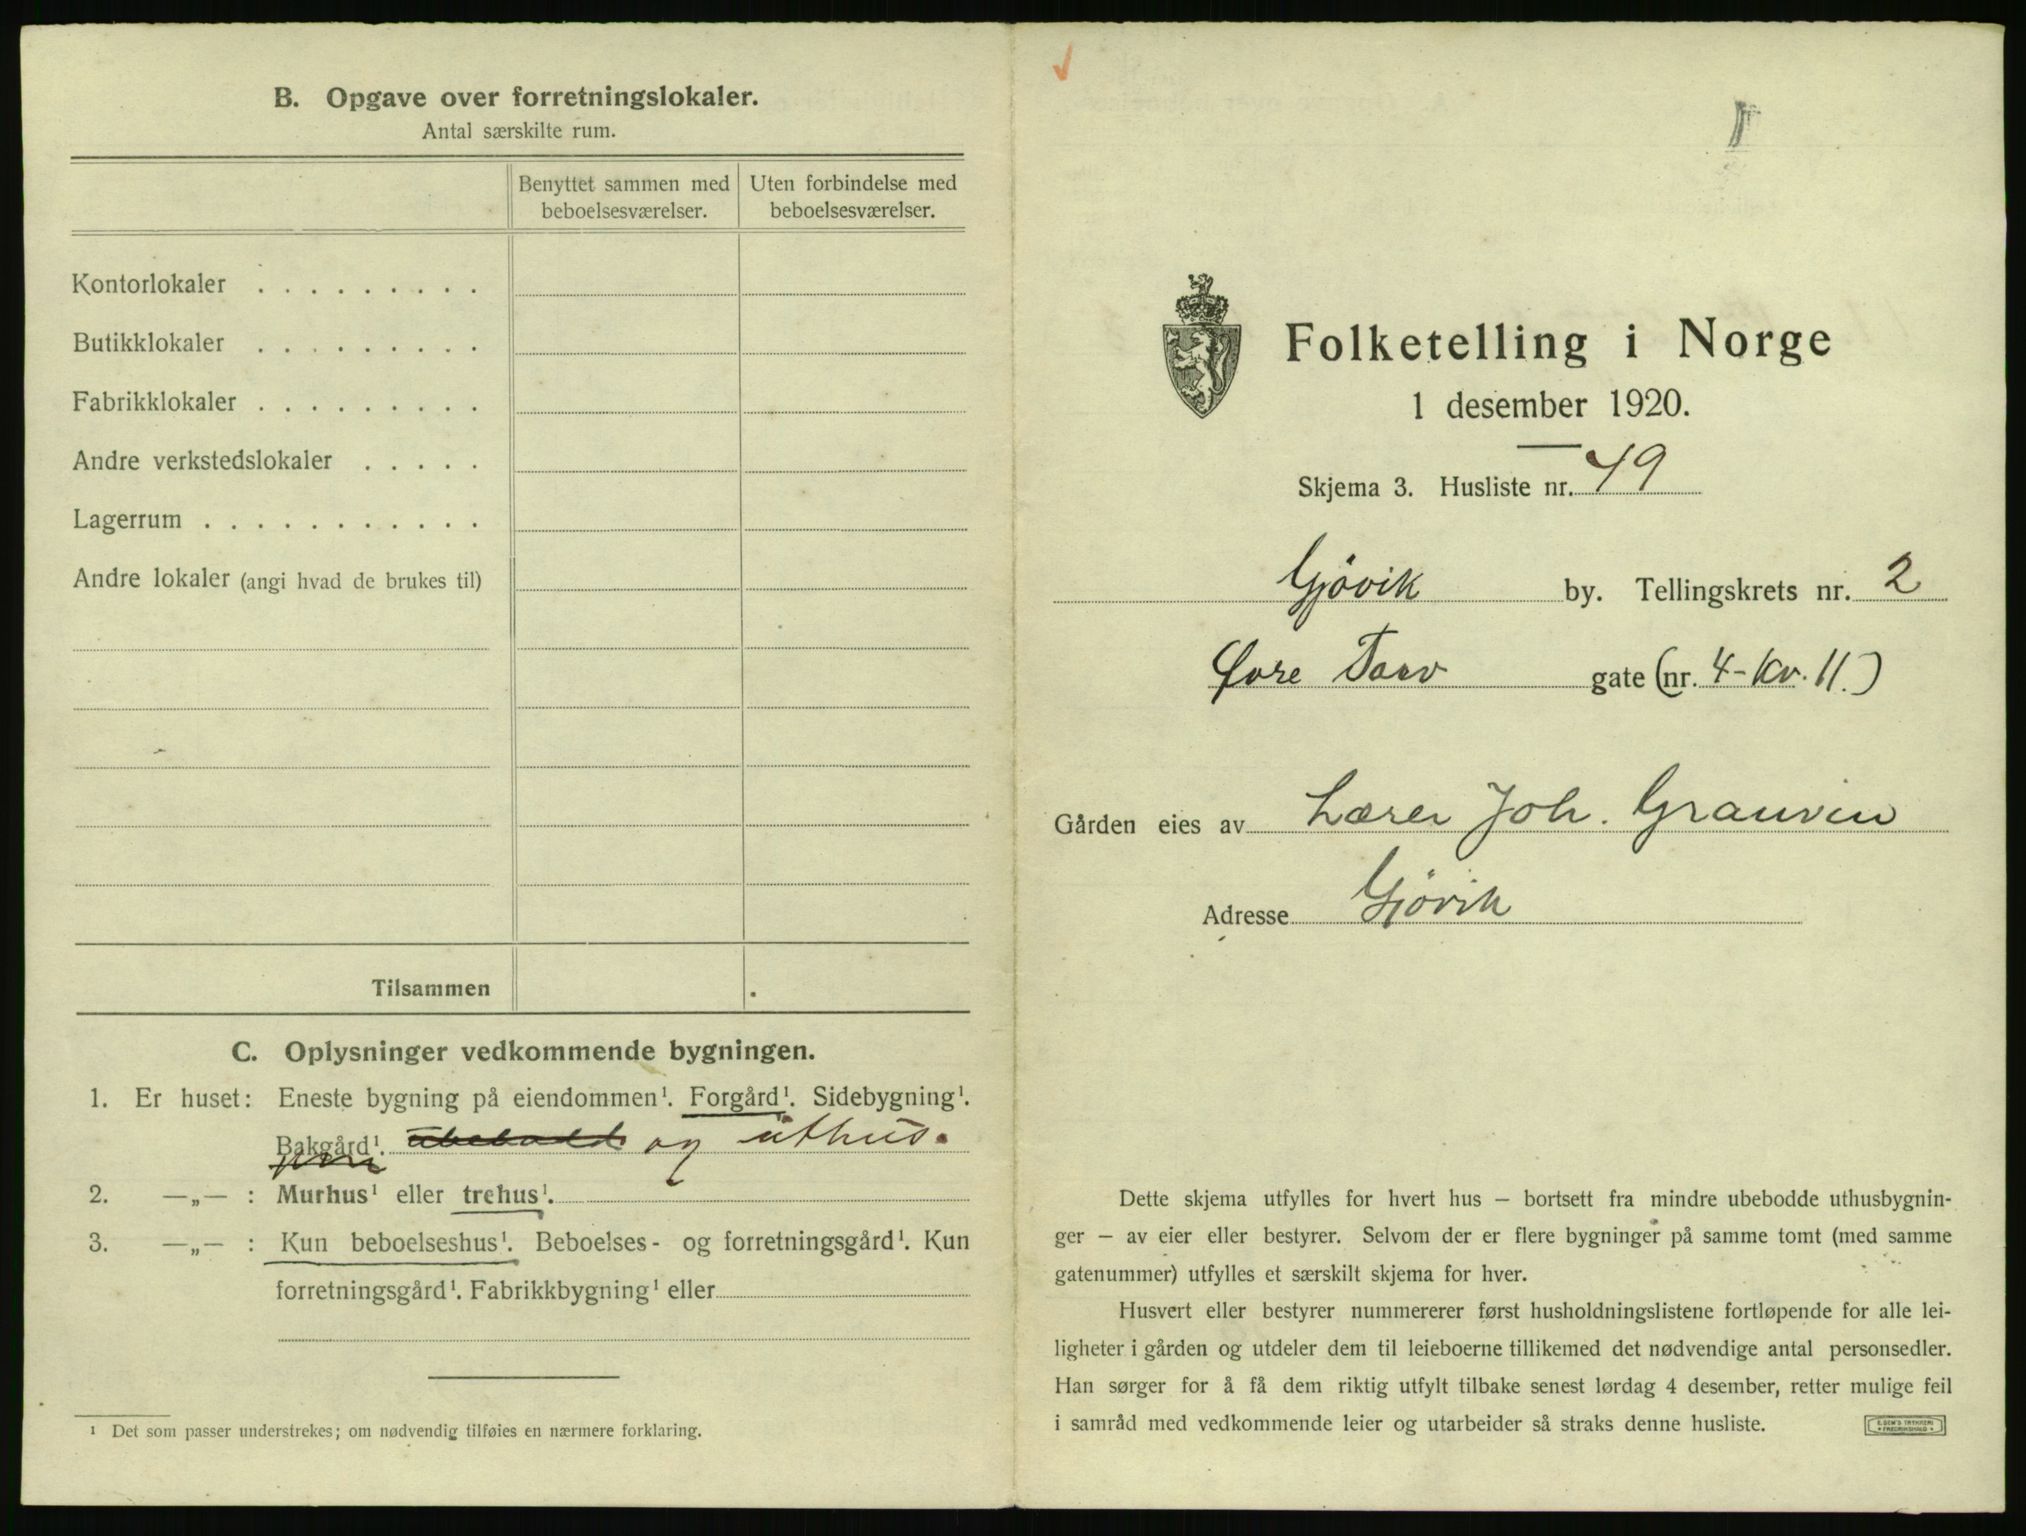 B. Opgave over forretningslokaler.
Antal særskilte rum.
Benyttet sammen med beboelsesværelser.
Uten forbindelse med beboelsesværelser.
Kontorlokaler . . . . . . . . .
Butikklokaler . . . . . . . . .
Fabrikklokaler . . . . . . . . .
Andre verkstedslokaler . . . . .
Lagerrum . . . . . . . . . . .
Andre lokaler (angi hvad de brukes til)
Tilsammen
C. Oplysninger vedkommende bygningen.
1. Er huset: Eneste bygning på eiendommen¹. Forgård¹. Sidebygning¹.
Bakgård¹. og uthus.
2. —„— : Murhus¹ eller trehus¹.
3. —„— : Kun beboelseshus¹. Beboelses- og forretningsgård¹. Kun
forretningsgård¹. Fabrikkbygning¹ eller
¹ Det som passer understrekes; om nødvendig tilføies en nærmere forklaring.
Folketelling i Norge
1 desember 1920.
Skjema 3. Husliste nr. 49
Gjövik by. Tellingskrets nr. 2
Øvre Torv gate (nr. 4-Kv. 11.)
Gården eies av Lærer Joh. Granvin
Adresse Gjövik
Dette skjema utfylles for hvert hus — bortsett fra mindre ubebodde uthusbygnin-
ger — av eier eller bestyrer. Selvom der er flere bygninger på samme tomt (med samme
gatenummer) utfylles et særskilt skjema for hver.
Husvert eller bestyrer nummererer først husholdningslistene fortløpende for alle lei-
ligheter i gården og utdeler dem til leieboerne tillikemed det nødvendige antal personsedler.
Han sørger for å få dem riktig utfylt tilbake senest lørdag 4 desember, retter mulige feil
i samråd med vedkommende leier og utarbeider så straks denne husliste.